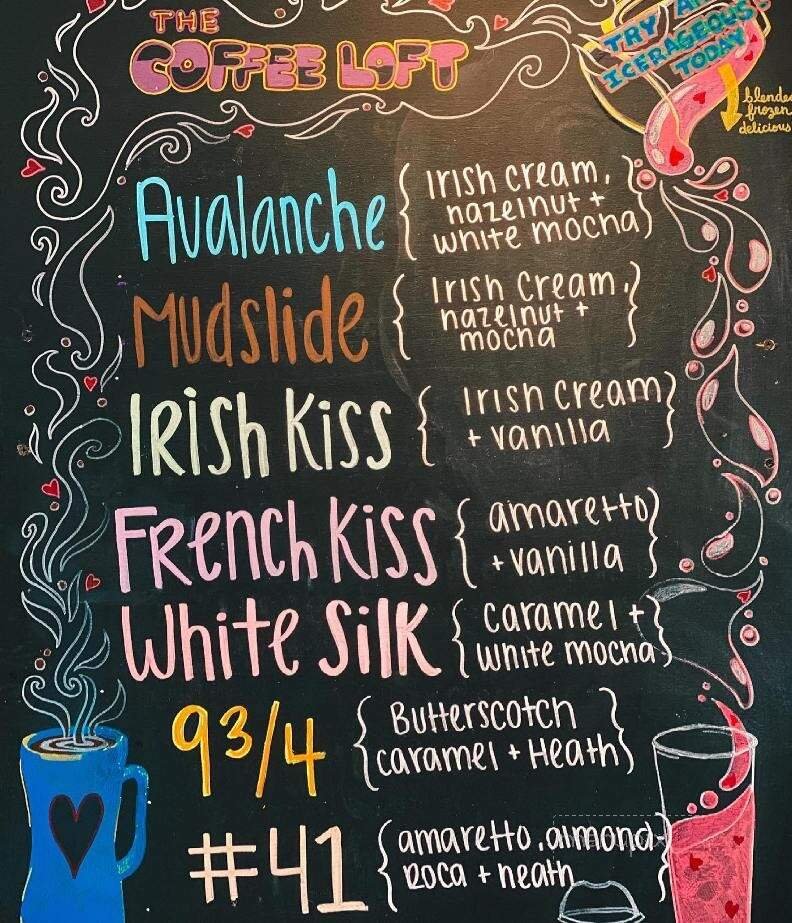 THE
COFFEE LOFT
TRY AN
ICERAGEOUS
TODAY
blended
frozen
delicious
Avalanche { Irish cream,
hazelnut +
white mocha }
Mudslide { Irish Cream,
hazelnut +
mocha }
IRish Kiss { Irish Cream
+ vanilla }
FRench Kiss { amaretto
+ vanilla }
White Silk { caramel +
white mocha }
9 3/4 { Butterscotch
caramel + Heath }
#41 { amaretto, almond
Roca + heath